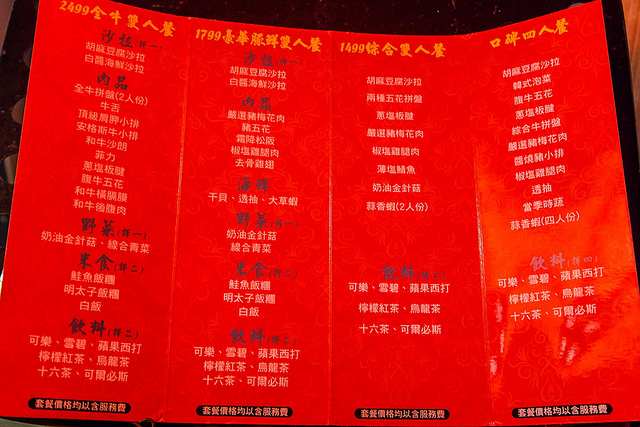 2499全牛雙人餐
沙拉(擇一)
胡麻豆腐沙拉
白醬海鮮沙拉
肉品
全牛拼盤(2人份)
牛舌
頂級肩胛小排
安格斯牛小排
和牛沙朗
菲力
蔥塩板腱
腹牛五花
和牛橫膈膜
和牛後腹肉
野菜(擇一)
奶油金針菇、綜合青菜
米食(擇二)
鮭魚飯糰
明太子飯糰
白飯
飲料(擇二)
可樂、雪碧、蘋果西打
檸檬紅茶、烏龍茶
十六茶、可爾必斯
套餐價格均以含服務費
1799豪華豚鮮雙人餐
沙拉(擇一)
胡麻豆腐沙拉
白醬海鮮沙拉
肉品
嚴選豬梅花肉
豬五花
霜降松阪
椒塩雞腿肉
去骨雞翅
海鮮
干貝、透抽、大草蝦
野菜(擇一)
奶油金針菇
綜合青菜
米食(擇二)
鮭魚飯糰
明太子飯糰
白飯
飲料(擇二)
可樂、雪碧、蘋果西打
檸檬紅茶、烏龍茶
十六茶、可爾必斯
套餐價格均以含服務費
1499綜合雙人餐
胡麻豆腐沙拉
兩種五花拼盤
蔥塩板腱
嚴選豬梅花肉
椒塩雞腿肉
薄塩鯖魚
奶油金針菇
蒜香蝦(2人份)
飲料(擇二)
可樂、雪碧、蘋果西打
檸檬紅茶、烏龍茶
十六茶、可爾必斯
套餐價格均以含服務費
口碑四人餐
胡麻豆腐沙拉
韓式泡菜
腹牛五花
蔥塩板腱
綜合牛拼盤
嚴選豬梅花肉
醬燒豬小排
椒塩雞腿肉
透抽
當季時蔬
蒜香蝦(四人份)
飲料(擇四)
可樂、雪碧、蘋果西打
檸檬紅茶、烏龍茶
十六茶、可爾必斯
套餐價格均以含服務費